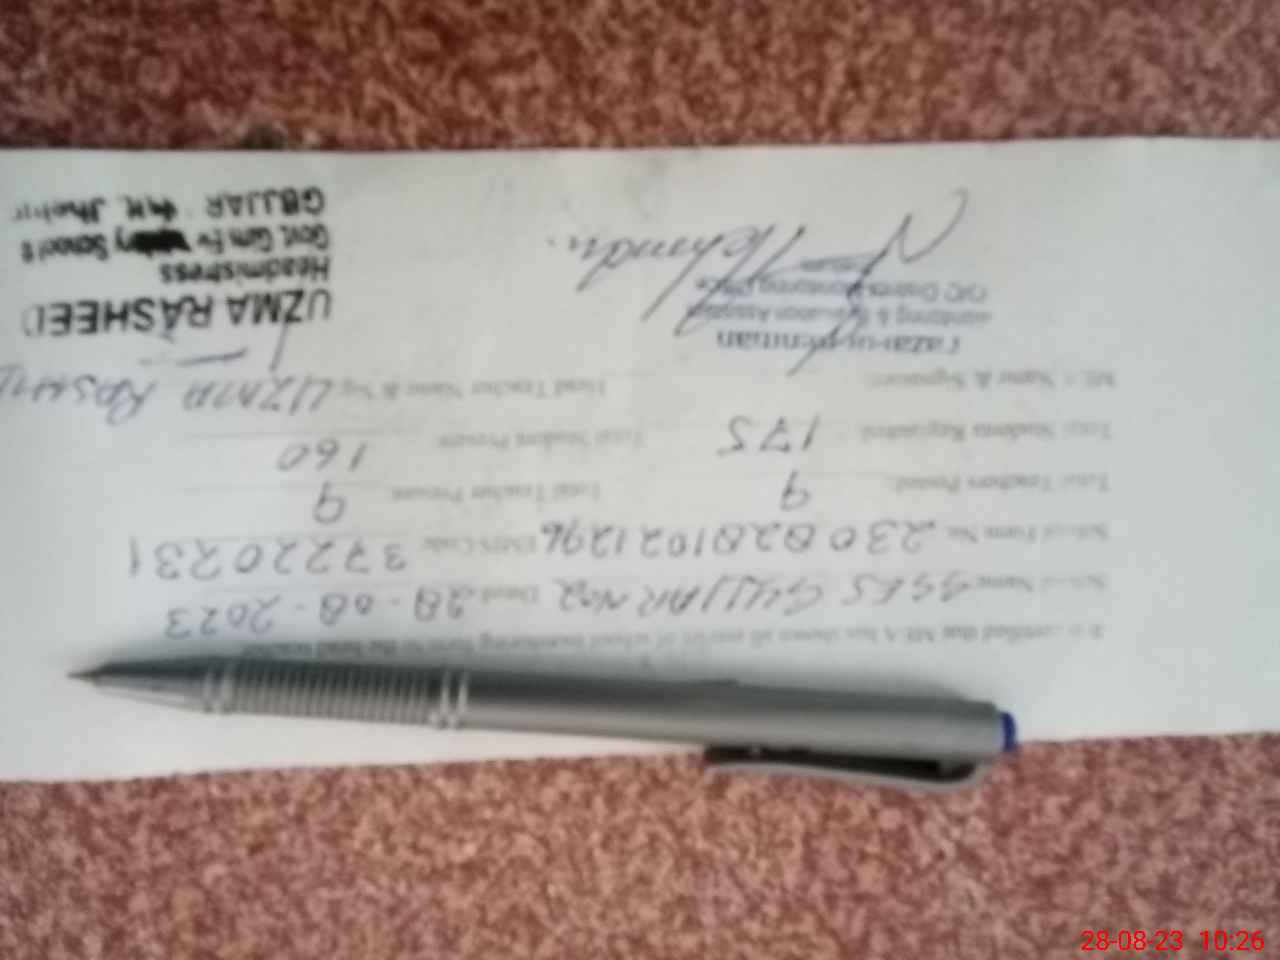 It is certified that MEA has shown all entries of school monitoring form to the head teacher
School Name GGES GUJJAR No2 Dated 28-08-2023
School Form No. 2308281021296 EMIS Code 37220231
Total Teachers Posted: 9 Total Teacher Present: 9
Total Students Registered: 175 Total Student Present: 160
MEA Name & Signature: Head Teacher Name & Sig UZMA RASHEED
Fazal-ur-Rehman
Monitoring & Evaluation Assistant
O/O District Monitoring Office
Rehman.
UZMA RASHEED
Headmistress
Govt. Girls School
GUJJAR
28-08-23 10:26